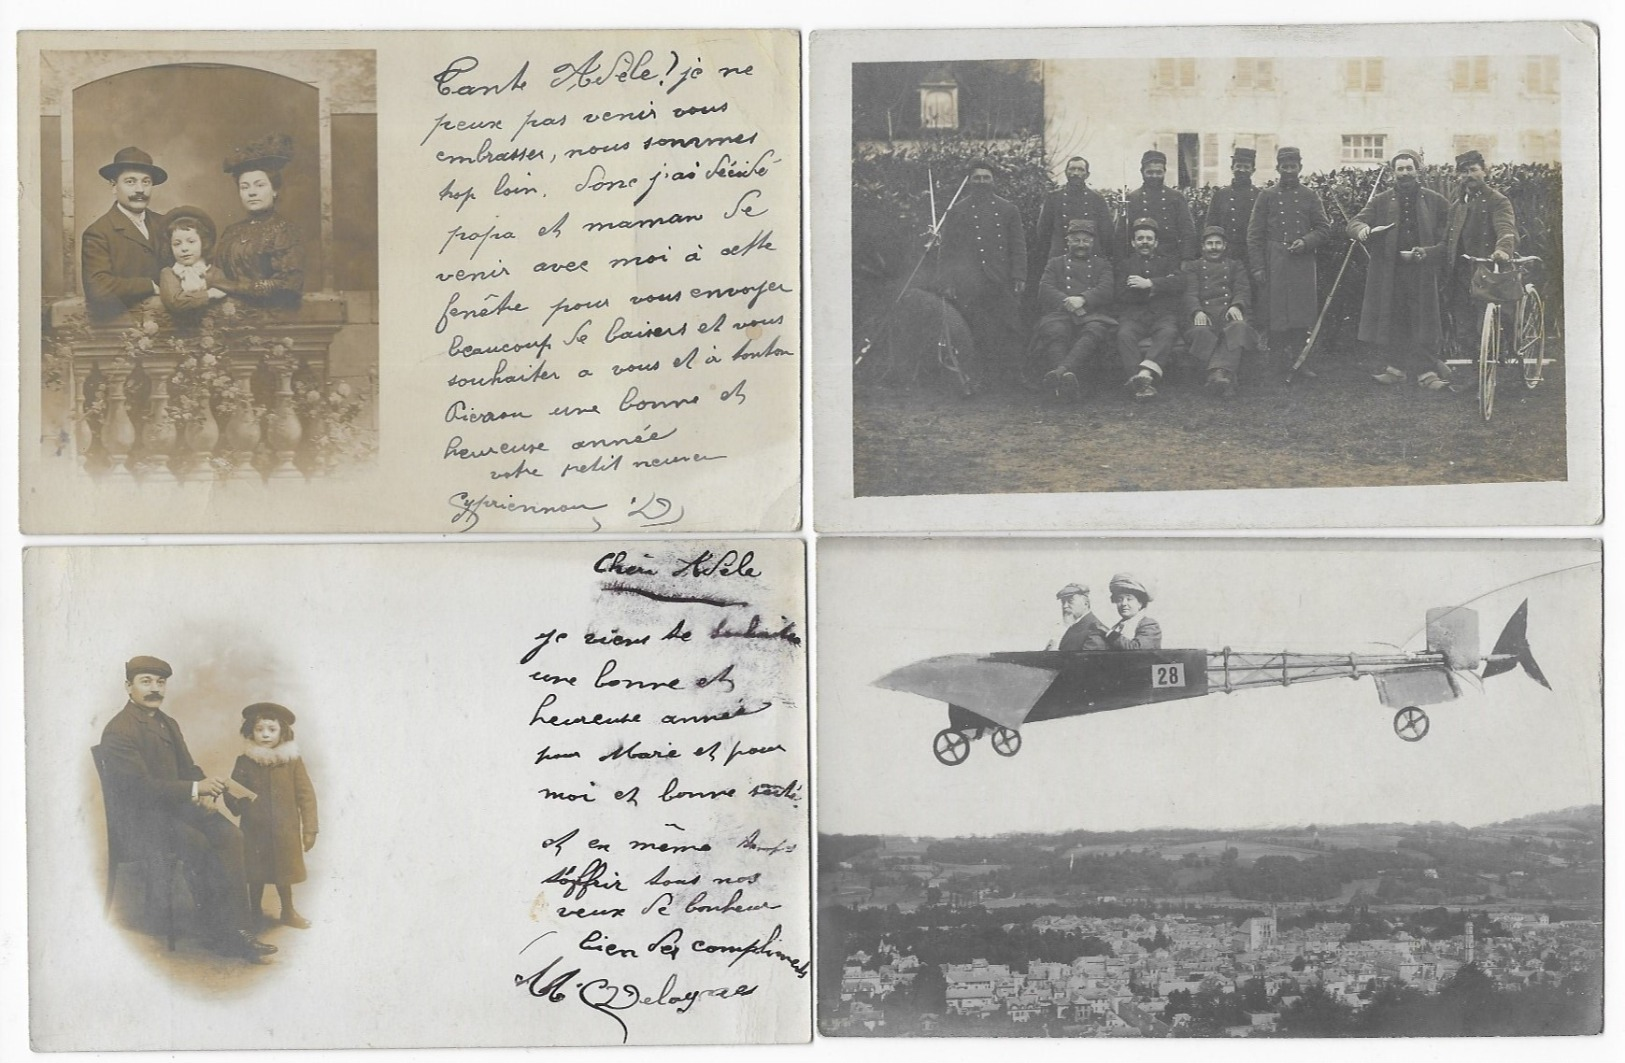 Tante Adèle! je ne
peux pas venir vous
embrasser, nous sommes
trop loin. Donc j'ai décidé
papa et maman de
venir avec moi à cette
fenêtre pour vous envoyer
beaucoup de baisers et vous
souhaiter a vous et à tonton
une bonne et
heureuse année
votre petit neveu
Cypriennou D
Cheri Adèle
je viens te souhaiter
une bonne et
heureuse année
pour Marie et pour
moi et bonne santé
et en même temps
t'offrir tous nos
veux de bonheur
bien des compliments
28